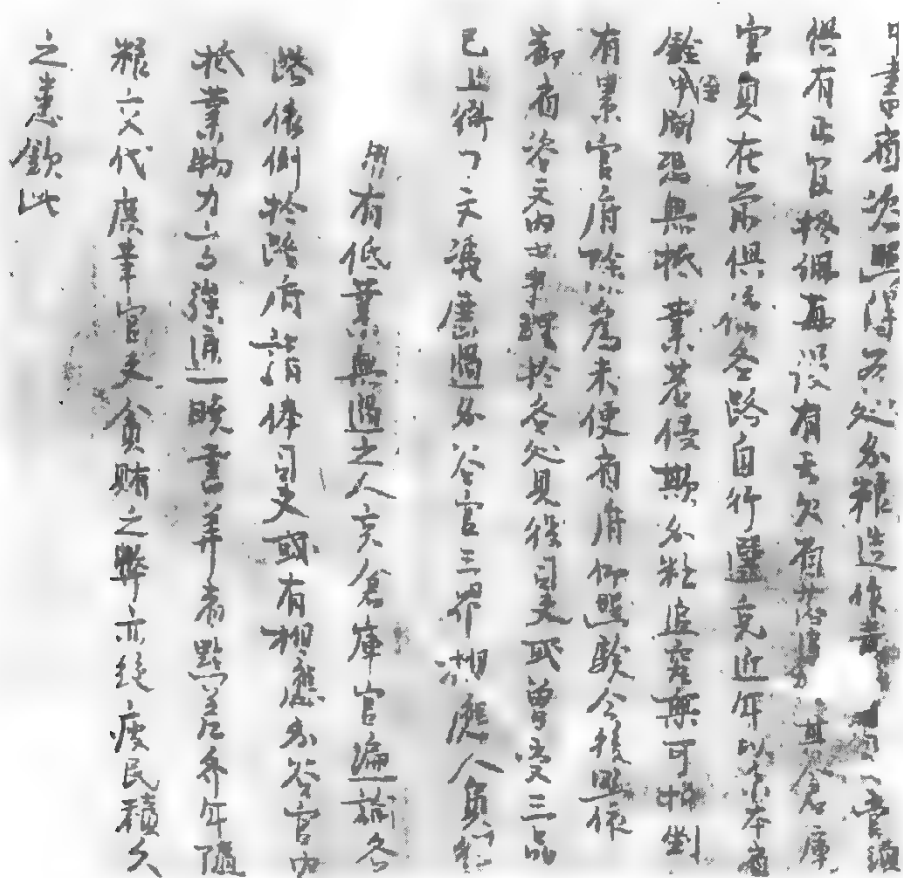 中書省欽照得各处分粮造作
俱有正官提調每設有去欠有其倉庫
官員在前俱係各路自行選充近年以来本省
銓注間恐無抵業若侵欺分粮追究無可折剉
有累官府除為未便省府仰照驗今後照依
都省咨文内事理於各処見役司吏或曾受三品
已上衙门文凭歷過分谷官三界相應人員
州有低業無過之人充倉庫官遍諭各
路依例於路府請俸司吏或有相應分谷官内
抵業物力高强通曉書算者點差齐年隨
粮交代庶革官吏貪賄之弊亦絶疲民積久
之患欽此